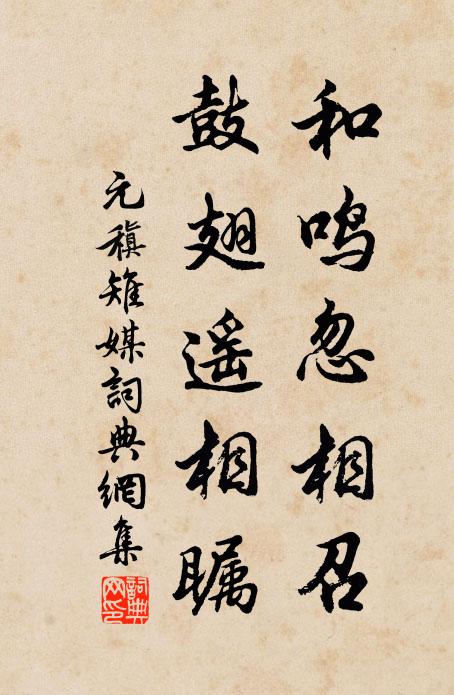 和鸣忽相召
鼓翅遥相瞩
元稹雉媒詞典網集
詞典网印